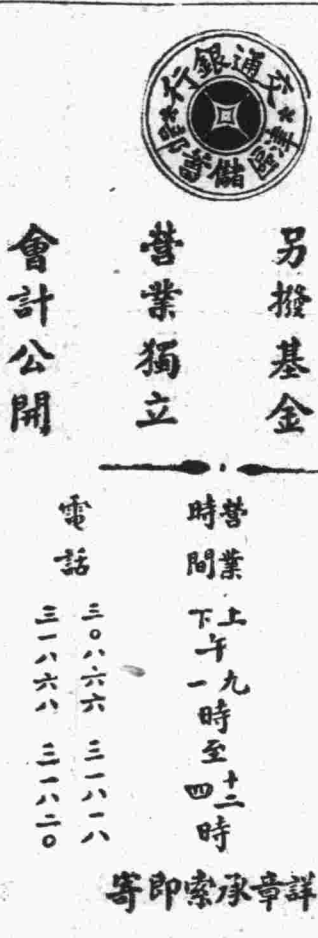 交通銀行
津區儲蓄部
另撥基金
營業獨立
會計公開
營業時間
上午九時至十二時
下午一時至四時
電話
三〇八六六 三一八一八
三一八六八 三一八二〇
詳章承索即寄